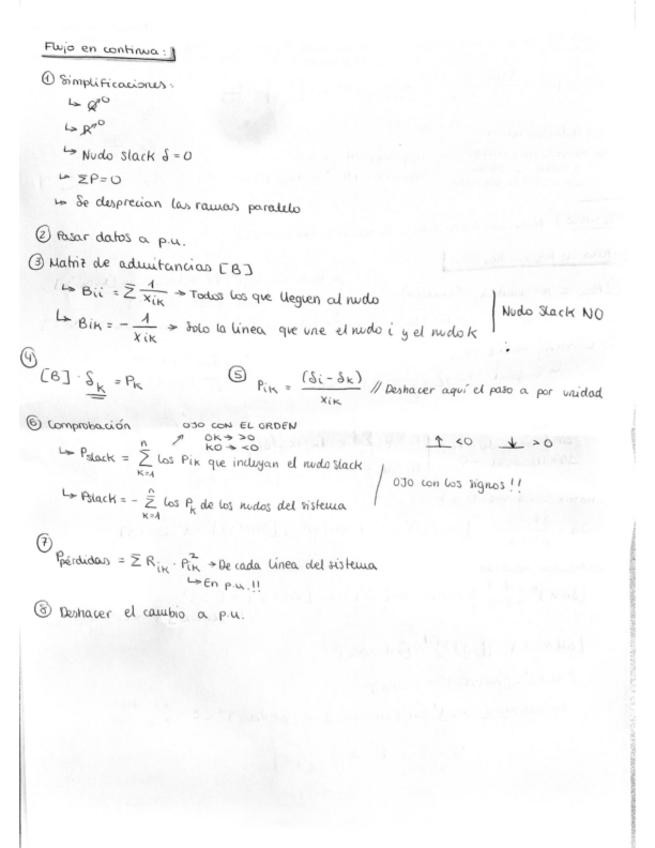 Flujo en continua:
① Simplificaciones:
↳ Q↗0
↳ R↗0
↳ Nudo slack δ = 0
↳ ΣP=0
↳ Se desprecian las ramas paralelo
② Pasar datos a p.u.
③ Matriz de admitancias [B]
↳ Bii = Σ 1/Xik → Todos los que lleguen al nudo
↳ Bik = - 1/Xik → Solo la línea que une el nudo i y el nudo k
Nudo Slack NO
④ [B] · δk = Pk
⑤ Pik = (δi - δk)/xik // Deshacer aquí el paso a por unidad
⑥ Comprobación
OJO CON EL ORDEN
0K → >0
K0 → <0
↳ Pslack = Σ (K=1, n) los Pik que incluyan el nudo slack
↑ <0 ↓ >0
↳ Pslack = - Σ (K=1, n) los Pk de los nudos del sistema
OJO con los signos!!
⑦ Ppérdidas = Σ Rik · Pik² → De cada línea del sistema
↳ En p.u.!!
⑧ Deshacer el cambio a p.u.